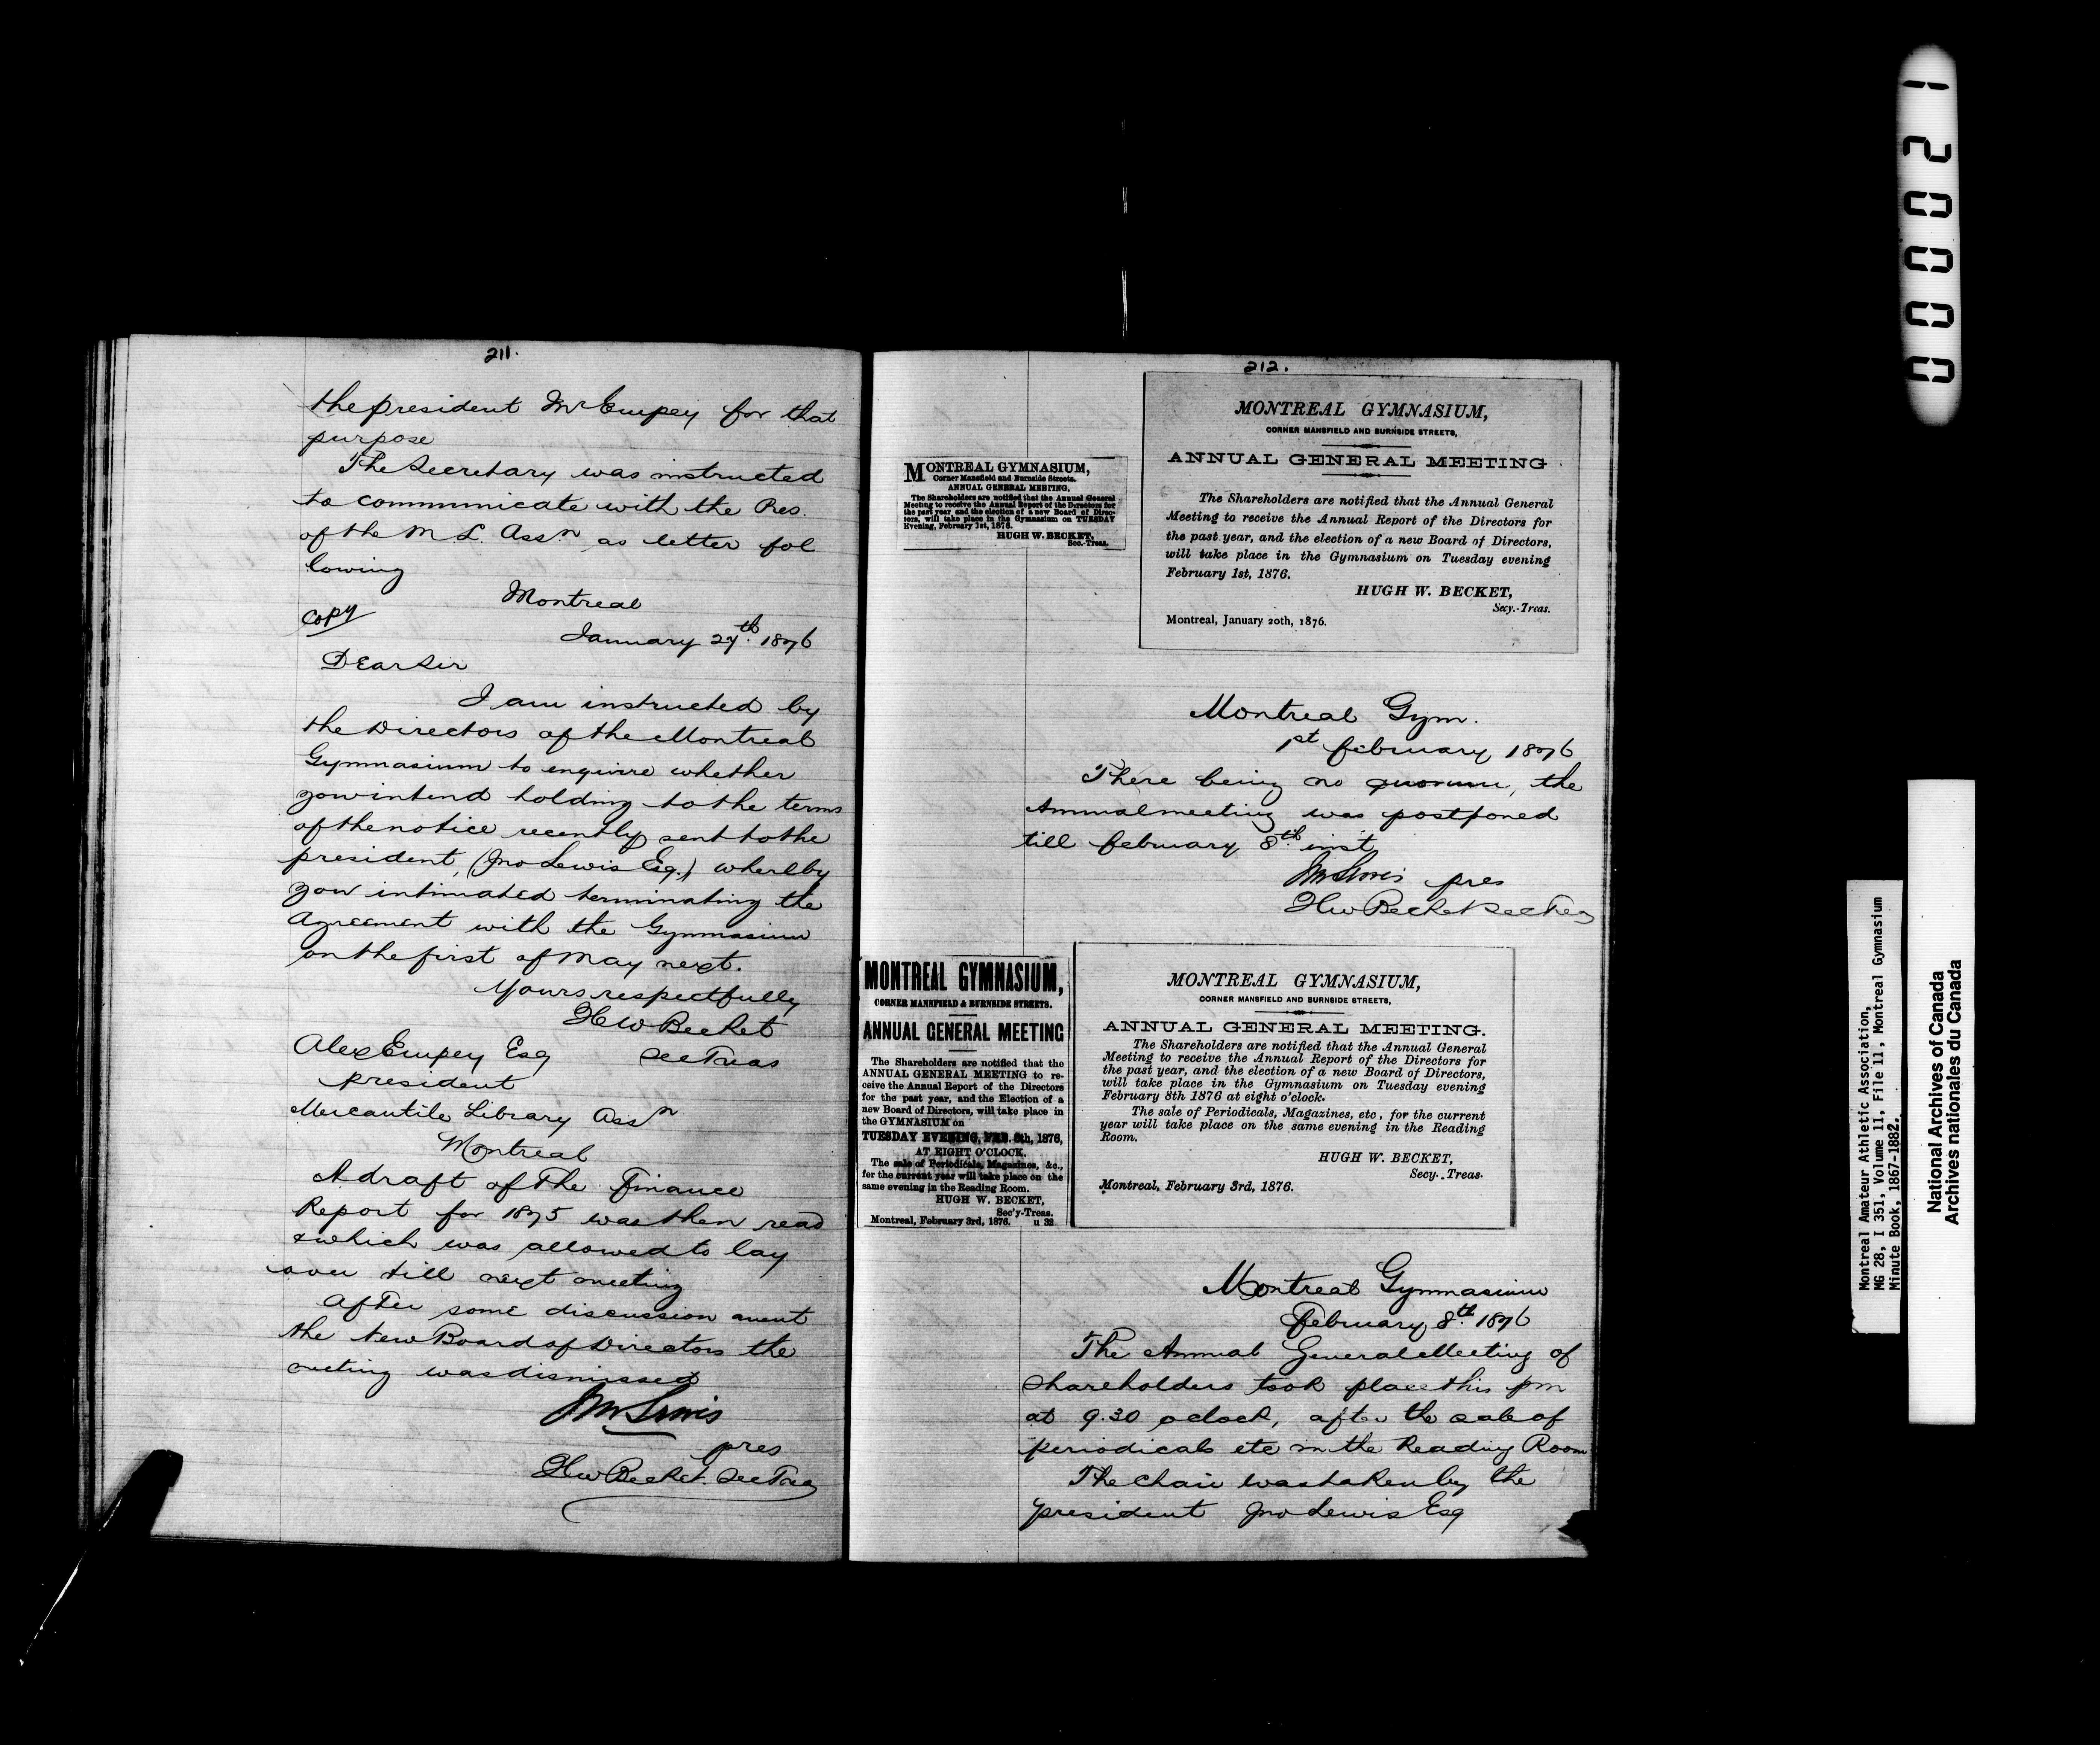 211.
the president Mr Empey for that
purpose
The Secretary was instructed
to communicate with the Pres.
of the M. L. Assn as letter fol
lowing
Montreal
Copy
January 27th. 1876
Dear Sir
I am instructed by
the Directors of the Montreal
Gymnasium to enquire whether
you intend holding to the terms
of the notice recently sent to the
president, (Jno Lewis Esq.) whereby
you intimated terminating the
Agreement with the Gymnasium
on the first of May next.
Yours respectfully
H W Becket
Alex Empey Esq Sec Treas
president
Mercantile Library Assn
Montreal
A draft of the Finance
Report for 1875 was then read
& which was allowed to lay
over till next meeting
After some discussion anent
the New Board of Directors the
meeting was dismissed
Jno Lewis
pres
H W Becket. Sec Treas
212.
MONTREAL GYMNASIUM,
Corner Mansfield and Burnside Streets.
ANNUAL GENERAL MEETING.
The Shareholders are notified that the Annual General
Meeting to receive the Annual Report of the Directors for
the past year and the election of a new Board of Direc-
tors, will take place in the Gymnasium on TUESDAY
Evening, February 1st, 1876.
HUGH W. BECKET,
Sec.-Treas.
MONTREAL GYMNASIUM,
CORNER MANSFIELD AND BURNSIDE STREETS,
ANNUAL GENERAL MEETING
The Shareholders are notified that the Annual General
Meeting to receive the Annual Report of the Directors for
the past year, and the election of a new Board of Directors,
will take place in the Gymnasium on Tuesday evening
February 1st, 1876.
HUGH W. BECKET,
Secy.-Treas.
Montreal, January 20th, 1876.
Montreal Gym.
1st February 1876
There being no quorum, the
Annual meeting was postponed
till February 8th. inst
Jno Lewis pres
H W Becket Sec Treas
MONTREAL GYMNASIUM,
CORNER MANSFIELD & BURNSIDE STREETS.
ANNUAL GENERAL MEETING
The Shareholders are notified that the
ANNUAL GENERAL MEETING to re-
ceive the Annual Report of the Directors
for the past year, and the Election of a
new Board of Directors, will take place in
the GYMNASIUM on
TUESDAY EVENING, FEB. 8th, 1876,
AT EIGHT O'CLOCK.
The sale of Periodicals, Magazines, &c.,
for the current year will take place on the
same evening in the Reading Room.
HUGH W. BECKET,
Sec'y-Treas.
Montreal, February 3rd, 1876. u 32
MONTREAL GYMNASIUM,
CORNER MANSFIELD AND BURNSIDE STREETS,
ANNUAL GENERAL MEETING.
The Shareholders are notified that the Annual General
Meeting to receive the Annual Report of the Directors for
the past year, and the election of a new Board of Directors,
will take place in the Gymnasium on Tuesday evening
February 8th 1876 at eight o'clock.
The sale of Periodicals, Magazines, etc, for the current
year will take place on the same evening in the Reading
Room.
HUGH W. BECKET,
Secy. Treas.
Montreal, February 3rd, 1876.
Montreal Gymnasium
February 8th. 1876
The Annual General Meeting of
Shareholders took place this pm
at 9.30 oclock, after the sale of
periodicals etc in the Reading Room
The chair was taken by the
president Jno Lewis Esq
00021
Montreal Amateur Athletic Association,
MG 28, I 351, Volume 11, File 11, Montreal Gymnasium
Minute Book, 1867-1882.
National Archives of Canada
Archives nationales du Canada